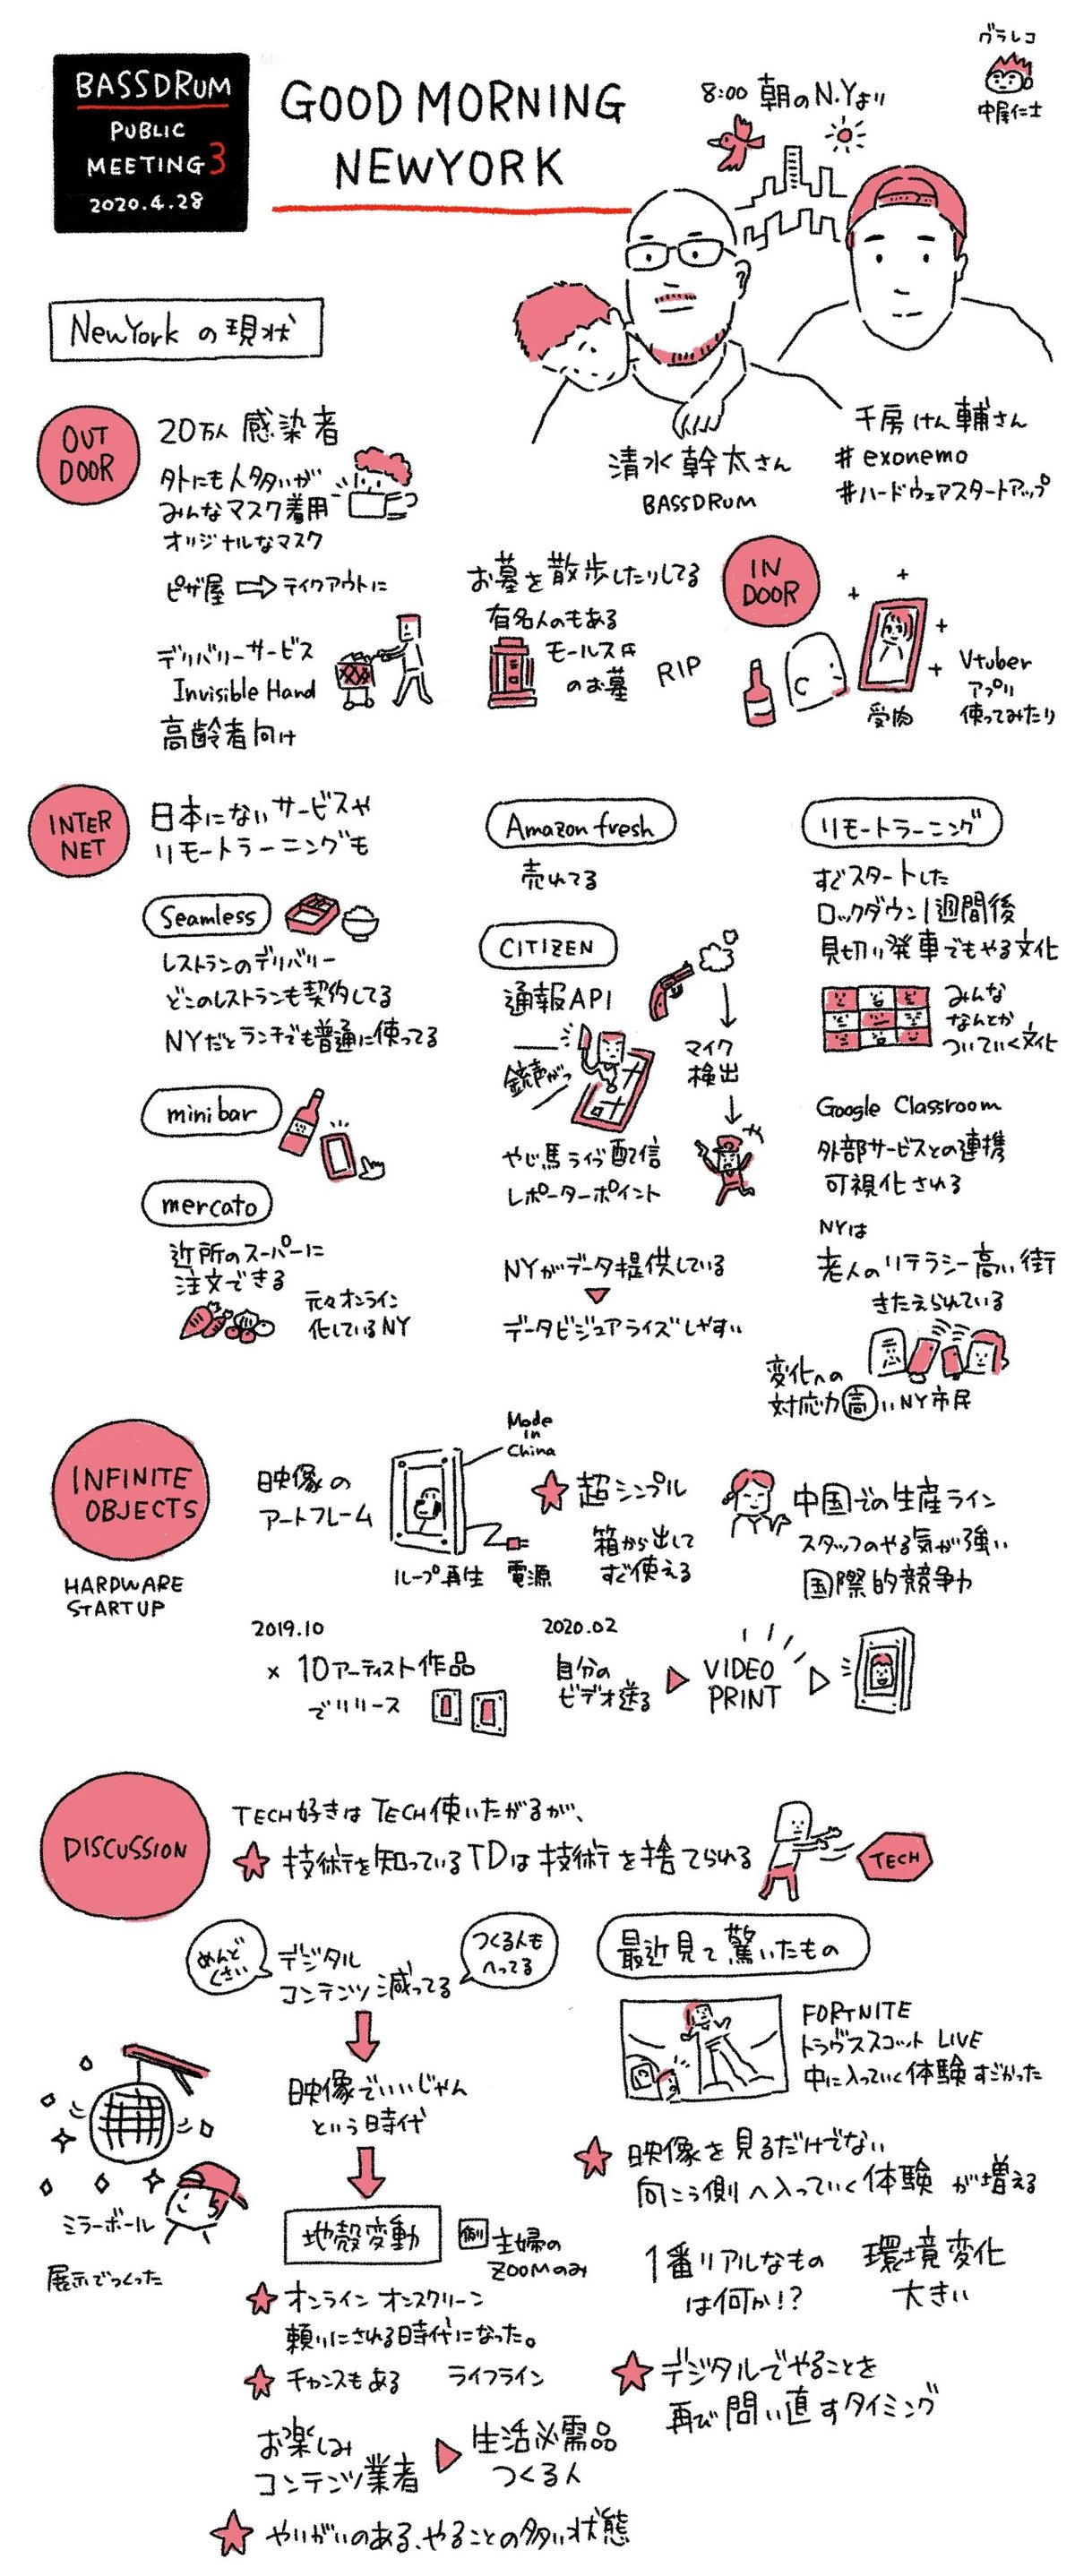 グラレコ
中尾仁士
BASSDRUM
PUBLIC
MEETING3
2020.4.28
GOOD MORNING
NEWYORK
8:00 朝のN.Yより
NewYork の現状
清水幹太さん
BASSDRUM
千房けん輔さん
#exonemo
#ハードウェアスタートアップ
OUT
DOOR
20万人 感染者
外にも人多いが
みんなマスク着用
オリジナルなマスク
ピザ屋 ⇨ テイクアウトに
デリバリーサービス
Invisible Hand
高齢者向け
お墓を散歩したりしてる
有名人のもある
モールス氏
のお墓
RIP
IN
DOOR
受肉
Vtuber
アプリ
使ってみたり
INTER
NET
日本にないサービスや
リモートラーニングも
Seamless
レストランのデリバリー
どこのレストランも契約してる
NYだとランチでも普通に使ってる
minibar
mercato
近所のスーパーに
注文できる
元々オンライン
化しているNY
Amazon fresh
売れてる
CITIZEN
通報API
銃声がっ
マイク
検出
やじ馬ライブ配信
レポーターポイント
NYがデータ提供している
データビジュアライズしやすい
リモートラーニング
すぐスタートした
ロックダウン1週間後
見切り発車でもやる文化
みんな
なんとか
ついていく文化
Google Classroom
外部サービスとの連携
可視化される
NYは
老人のリテラシー高い街
きたえられている
変化への
対応力高いNY市民
INFINITE
OBJECTS
HARDWARE
STARTUP
映像の
アートフレーム
Made
in
China
ループ再生
電源
★ 超シンプル
箱から出して
すぐ使える
中国での生産ライン
スタッフのやる気が強い
国際的競争力
2019.10
× 10アーティスト作品
でリリース
2020.02
自分の
ビデオ送る
VIDEO
PRINT
DISCUSSION
TECH好きは TECH使いたがるが、
★ 技術を知っているTDは技術を捨てられる
TECH
めんど
くさい
デジタル
コンテンツ減ってる
つくる人も
へってる
映像でいいじゃん
という時代
地殻変動
例 主婦の
ZOOMのみ
ミラーボール
展示でつくった
★ オンライン オンスクリーン
頼りにされる時代になった。
★ チャンスもある ライフライン
お楽しみ
コンテンツ業者
生活必需品
つくる人
★ やりがいのある、やることの多い状態
最近見て驚いたもの
FORTNITE
トラヴィススコット LIVE
中に入っていく体験すごかった
★ 映像を見るだけでない
向こう側へ入っていく体験が増える
1番リアルなもの
は何か!?
環境変化
大きい
★ デジタルでやることを
再び問い直すタイミング